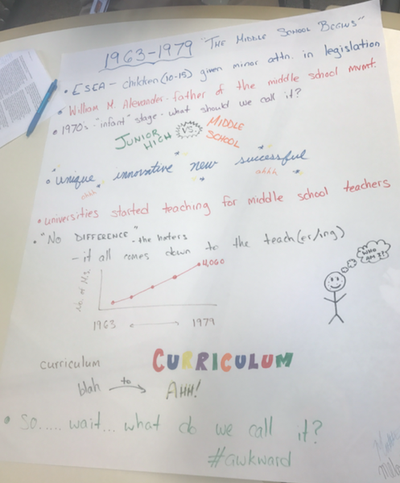 1963-1979 "The Middle School Begins"
• ESEA - children (10-15) given minor attn. in legislation
• William M. Alexander - father of the middle school mvmt.
• 1970s - "infant" stage - what should we call it?
JUNIOR HIGH VS. MIDDLE SCHOOL
• "unique innovative new successful
ahhh ahhh
• universities started teaching for middle school teachers
• "No DIFFERENCE" - the haters
- it all comes down to the teach(er/ing)
4,060
No. of M.S.
1963 1979
WHO AM I?
curriculum CURRICULUM
blah to AHH!
• So..... wait... what do we call it?
#awkward